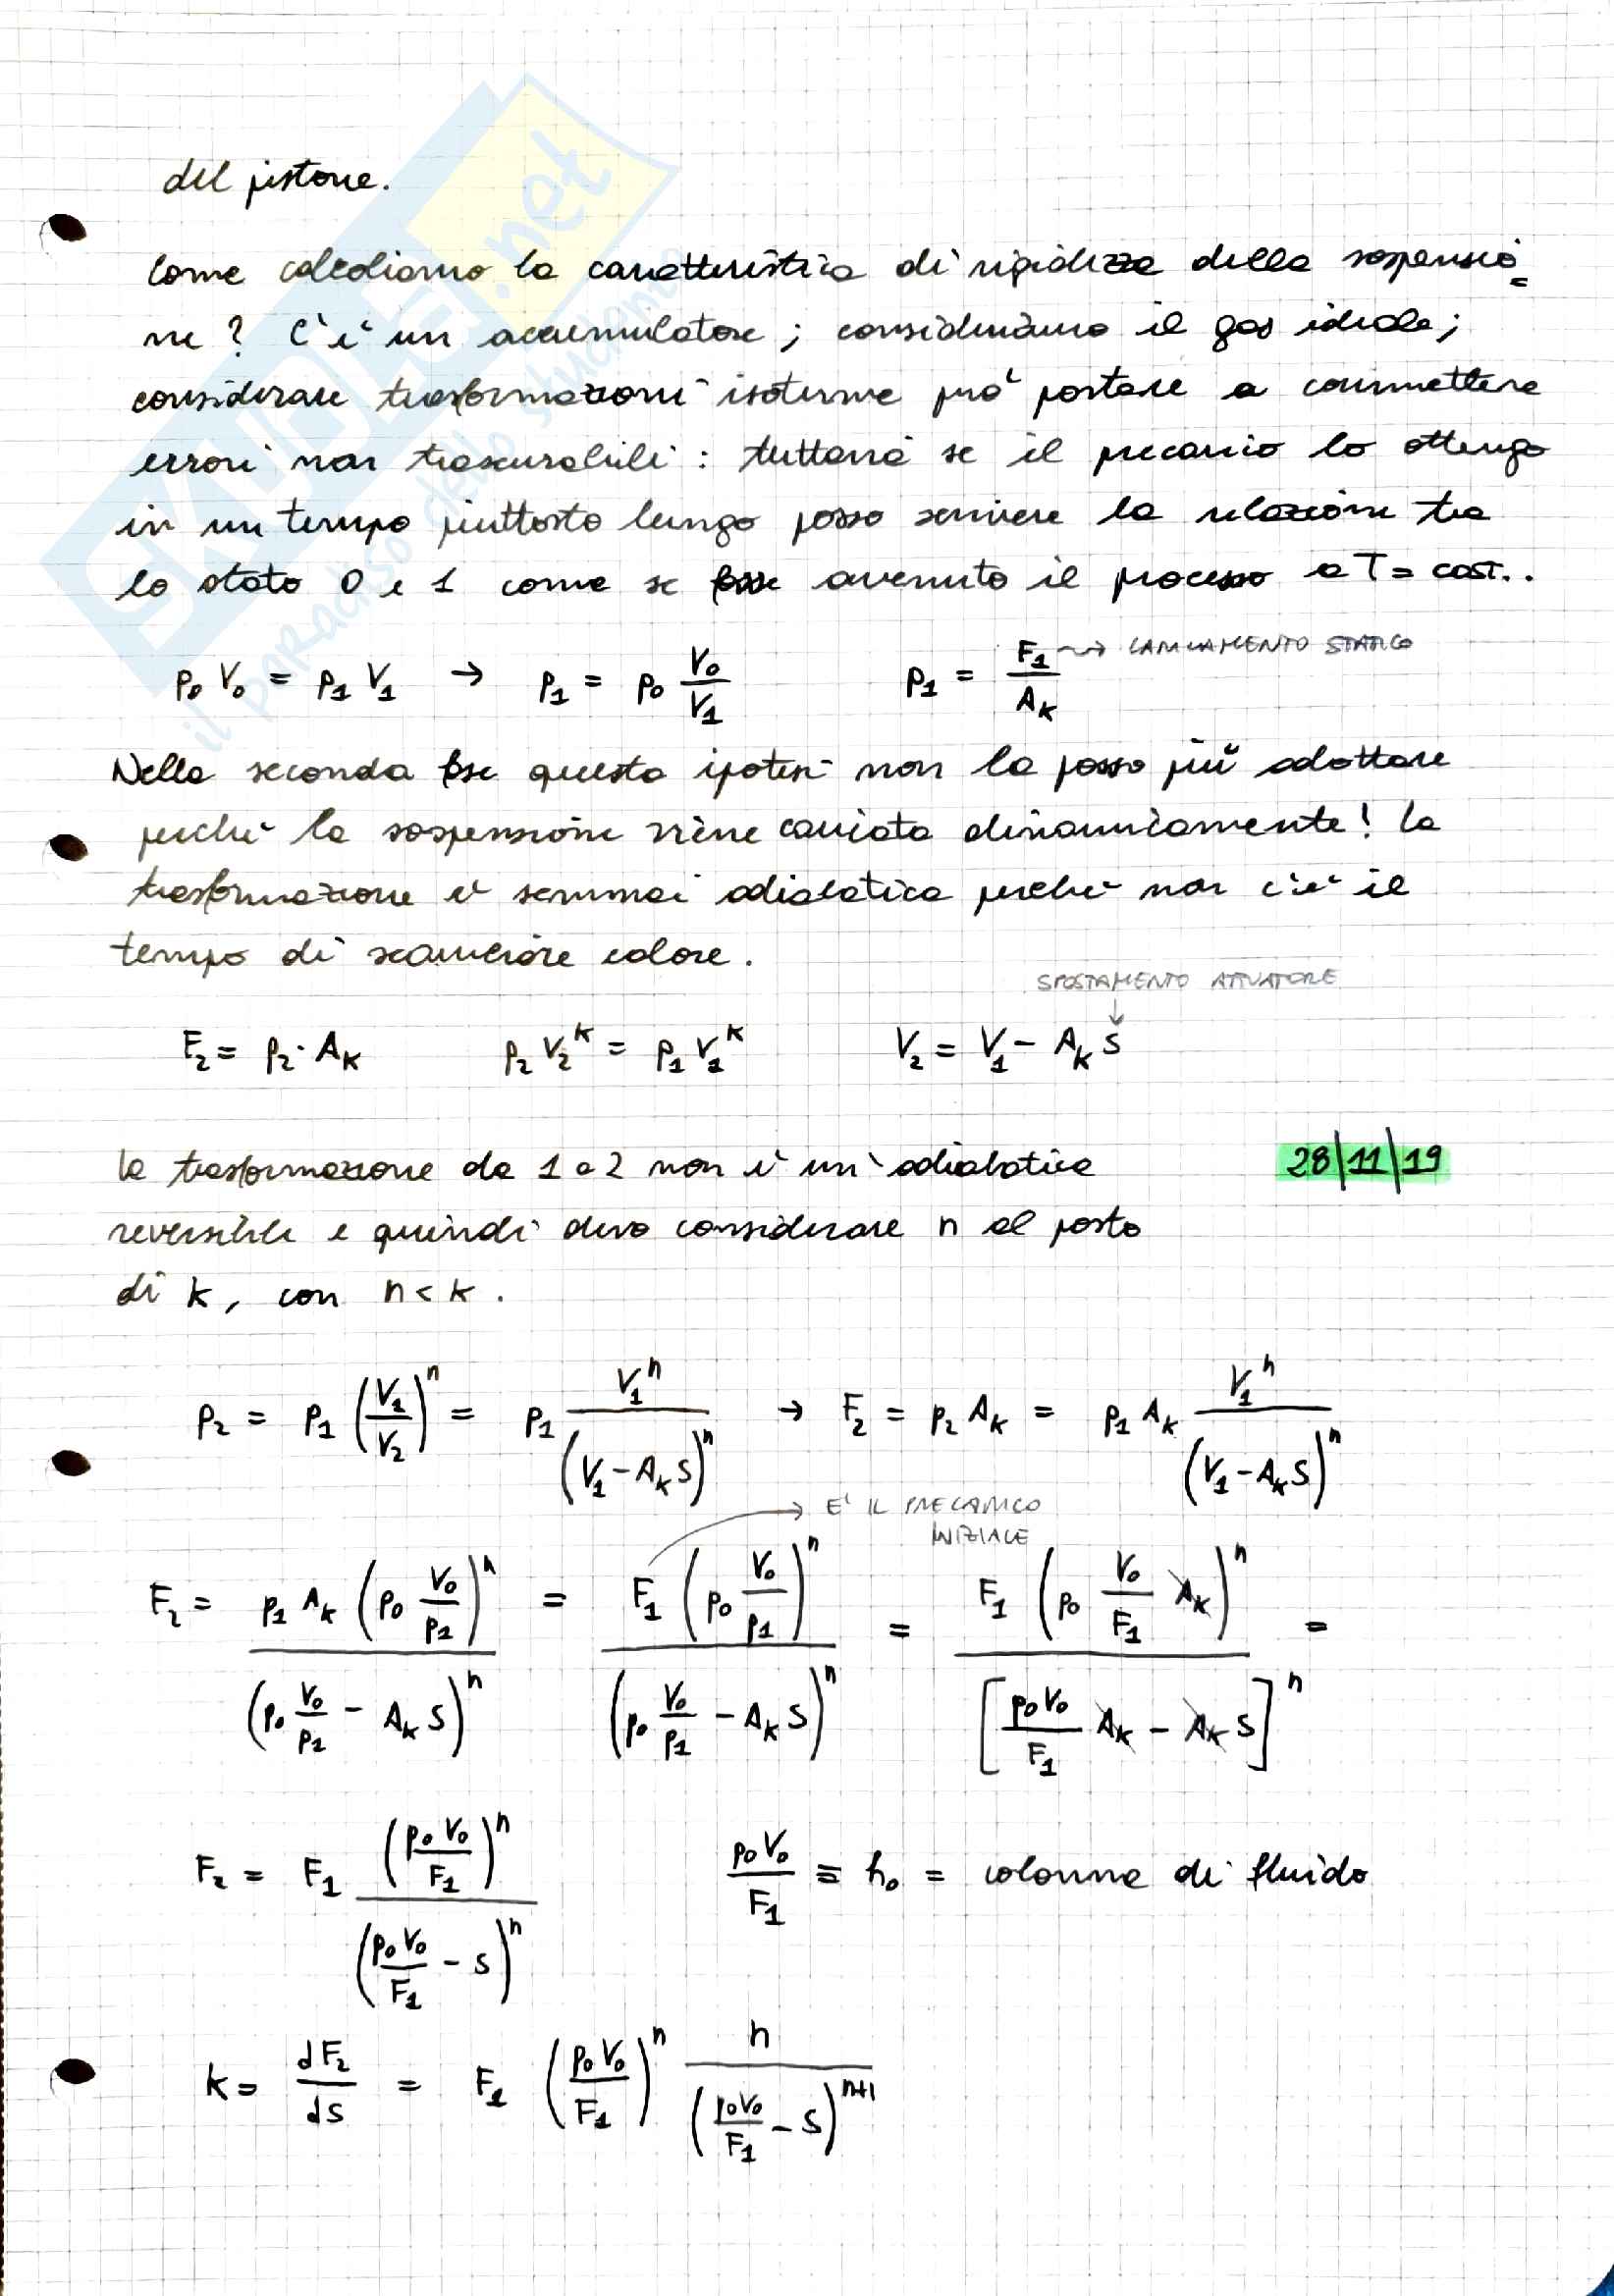 del pistone.
Come calcoliamo la caratteristica di rigidezza della sospensio
ne ? C'è un accumulatore ; consideriamo il gas ideale ;
considerare trasformazioni isoterme può portare a commettere
errori non trascurabili : tuttavia se il precarico lo ottengo
in un tempo piuttosto lungo posso scrivere la relazione tra
lo stato 0 e 1 come se fosse avvenuto il processo a T = cost..
p₀ V₀ = p₁ V₁ → p₁ = p₀ V₀/V₁ p₁ = F₁/A_K ⇝ CARICAMENTO STATICO
Nella seconda fase questa ipotesi non la posso più adottare
perché la sospensione viene caricata dinamicamente! La
trasformazione è semmai adiabatica perché non c'è il
tempo di scambiare calore.
SPOSTAMENTO ATTUATORE
F₂ = p₂ · A_K p₂ V₂^K = p₁ V₁^K V₂ = V₁ - A_K s
La trasformazione da 1 a 2 non è un'adiabatica 28/11/19
reversibile e quindi devo considerare n al posto
di k, con n < k.
p₂ = p₁ (V₁/V₂)^n = p₁ V₁^n/(V₁ - A_K s)^n → F₂ = p₂ A_K = p₁ A_K V₁^n/(V₁ - A_K s)^n
→ E' IL PRECARICO
INIZIALE
F₂ = p₁ A_K (p₀ V₀/p₁)^n/(p₀ V₀/p₁ - A_K s)^n = F₁ (p₀ V₀/p₁)^n/(p₀ V₀/p₁ - A_K s)^n = F₁ (p₀ V₀/F₁ A_K)^n/[p₀V₀/F₁ A_K - A_K s]^n =
F₂ = F₁ (p₀ V₀/F₁)^n/(p₀ V₀/F₁ - s)^n p₀ V₀/F₁ ≡ h₀ = colonna di fluido
k = dF₂/ds = F₁ (p₀ V₀/F₁)^n n/(p₀V₀/F₁ - s)^(n+1)
SKUOLA.net
il paradiso dello studente